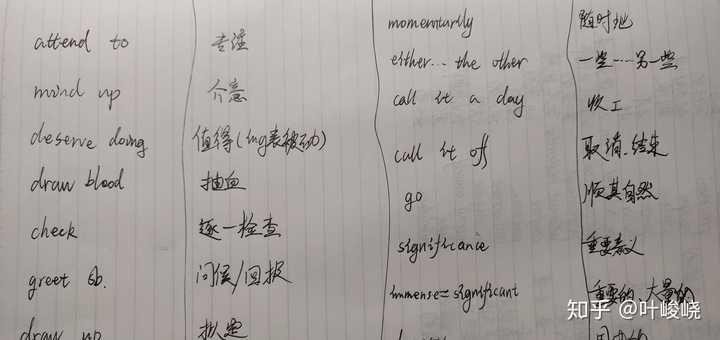 attend to 专注
mind up 介意
deserve doing 值得(ing表被动)
draw blood 抽血
check 逐一检查
greet sb. 问候/回报
draw up 拟定
momentarily 随时地
either... the other 一些...另一些
call it a day 收工
call it off 取消.结束
go 顺其自然
significance 重要意义
immense=significant 重要的,大量的
知乎 @叶峻峣